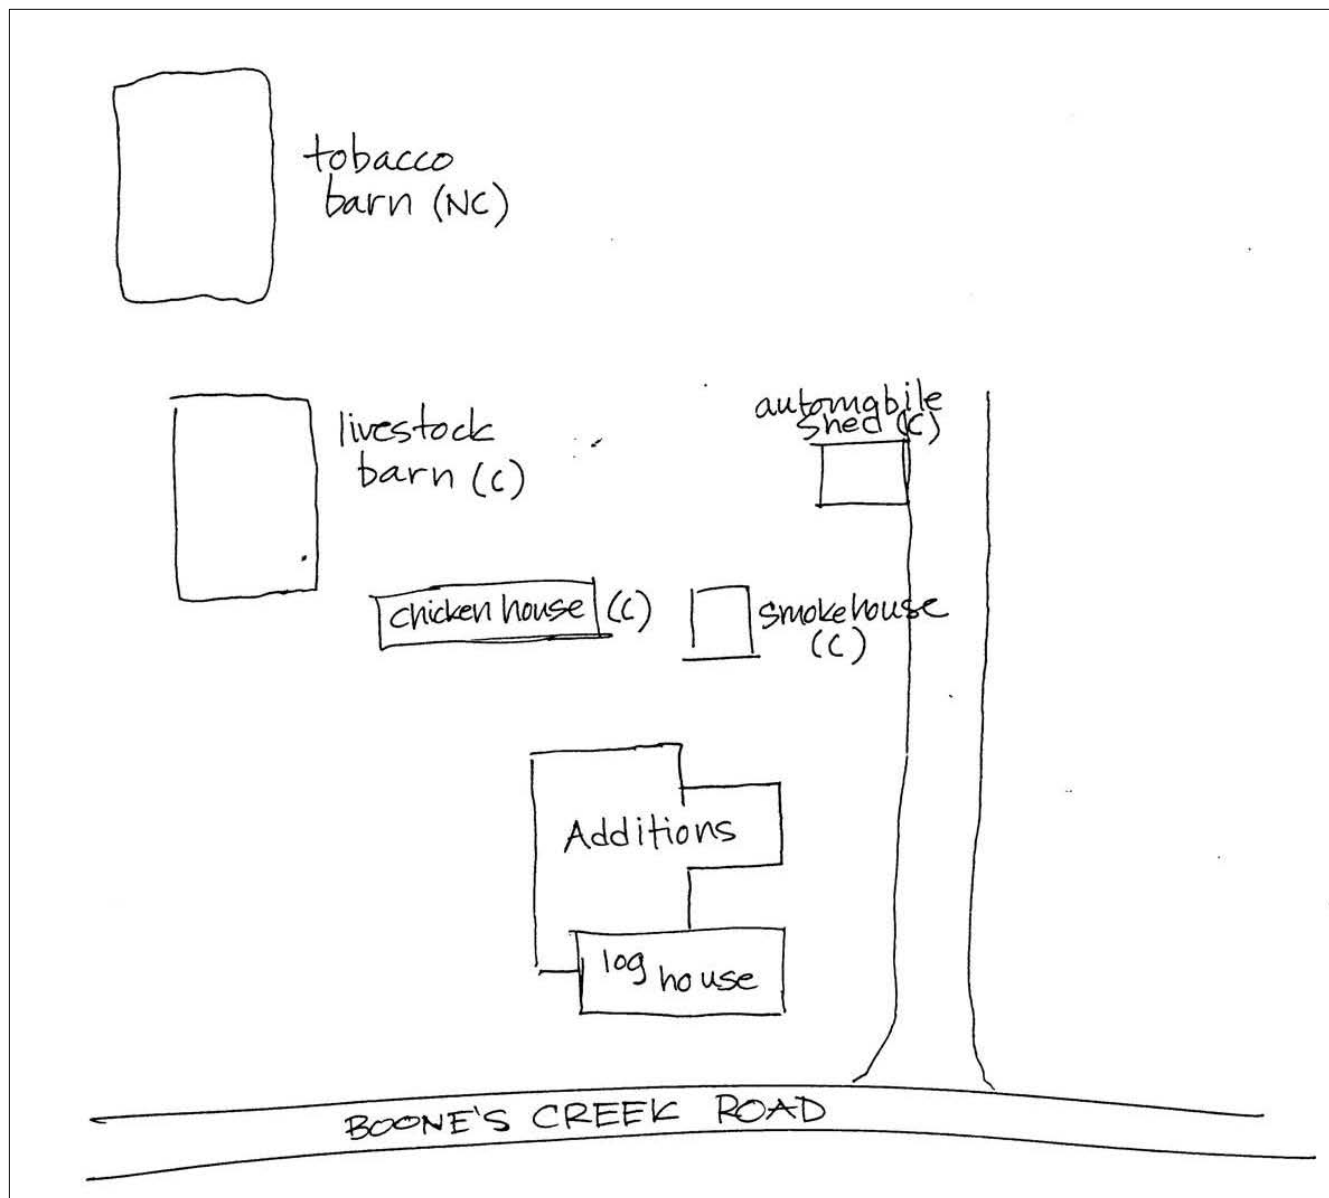 tobacco
barn (NC)
livestock
barn (C)
automobile
shed (C)
chicken house (C)
smokehouse
(C)
Additions
log house
BOONE'S CREEK ROAD